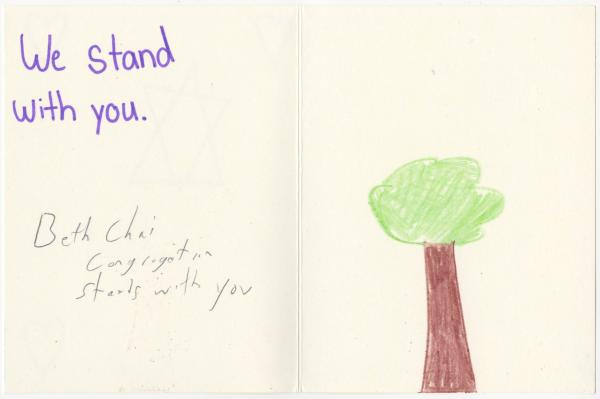 We stand
with you.
Beth Chai
Congregation
stands with you